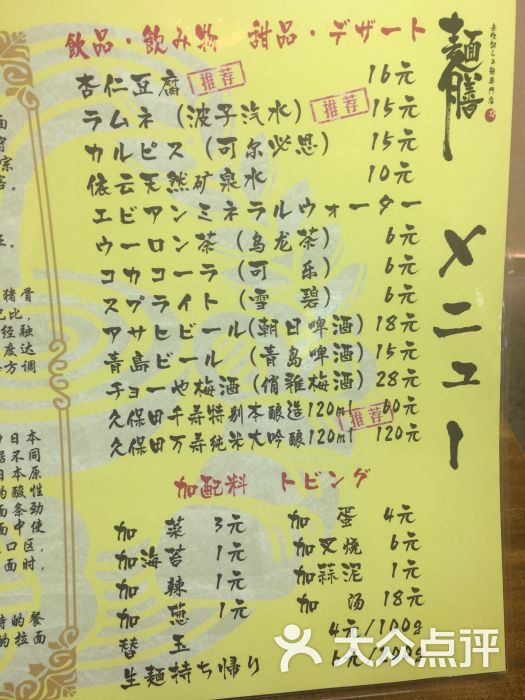 飲品・飲み物 甜品・デザート
杏仁豆腐 推荐 16元
ラムネ(波子汽水) 推荐 15元
カルピス(可尔必思) 15元
依云天然矿泉水 10元
エビアンミネラルウォーター
ウーロン茶(乌龙茶) 6元
コカコーラ(可乐) 6元
スプライト(雪碧) 6元
アサヒビール(朝日啤酒) 18元
青島ビール(青岛啤酒) 15元
チョーや梅酒(俏雅梅酒) 28元
久保田千寿特别本醸造120ml 60元
推荐
久保田万寿純米大吟醸120ml 120元
麺膳
メニュー
加配料 トビング
加菜 3元
加海苔 1元
加辣 1元
加葱 1元
加蛋 4元
加叉烧 6元
加蒜泥 1元
加汤 18元
替玉 4元/100g
生麺持ち帰り
大众点评
猪骨
比,
经融
度达
方调
日本
不同
本原
酸性
条劲
中使
口区,
面时,
的餐
的拉面